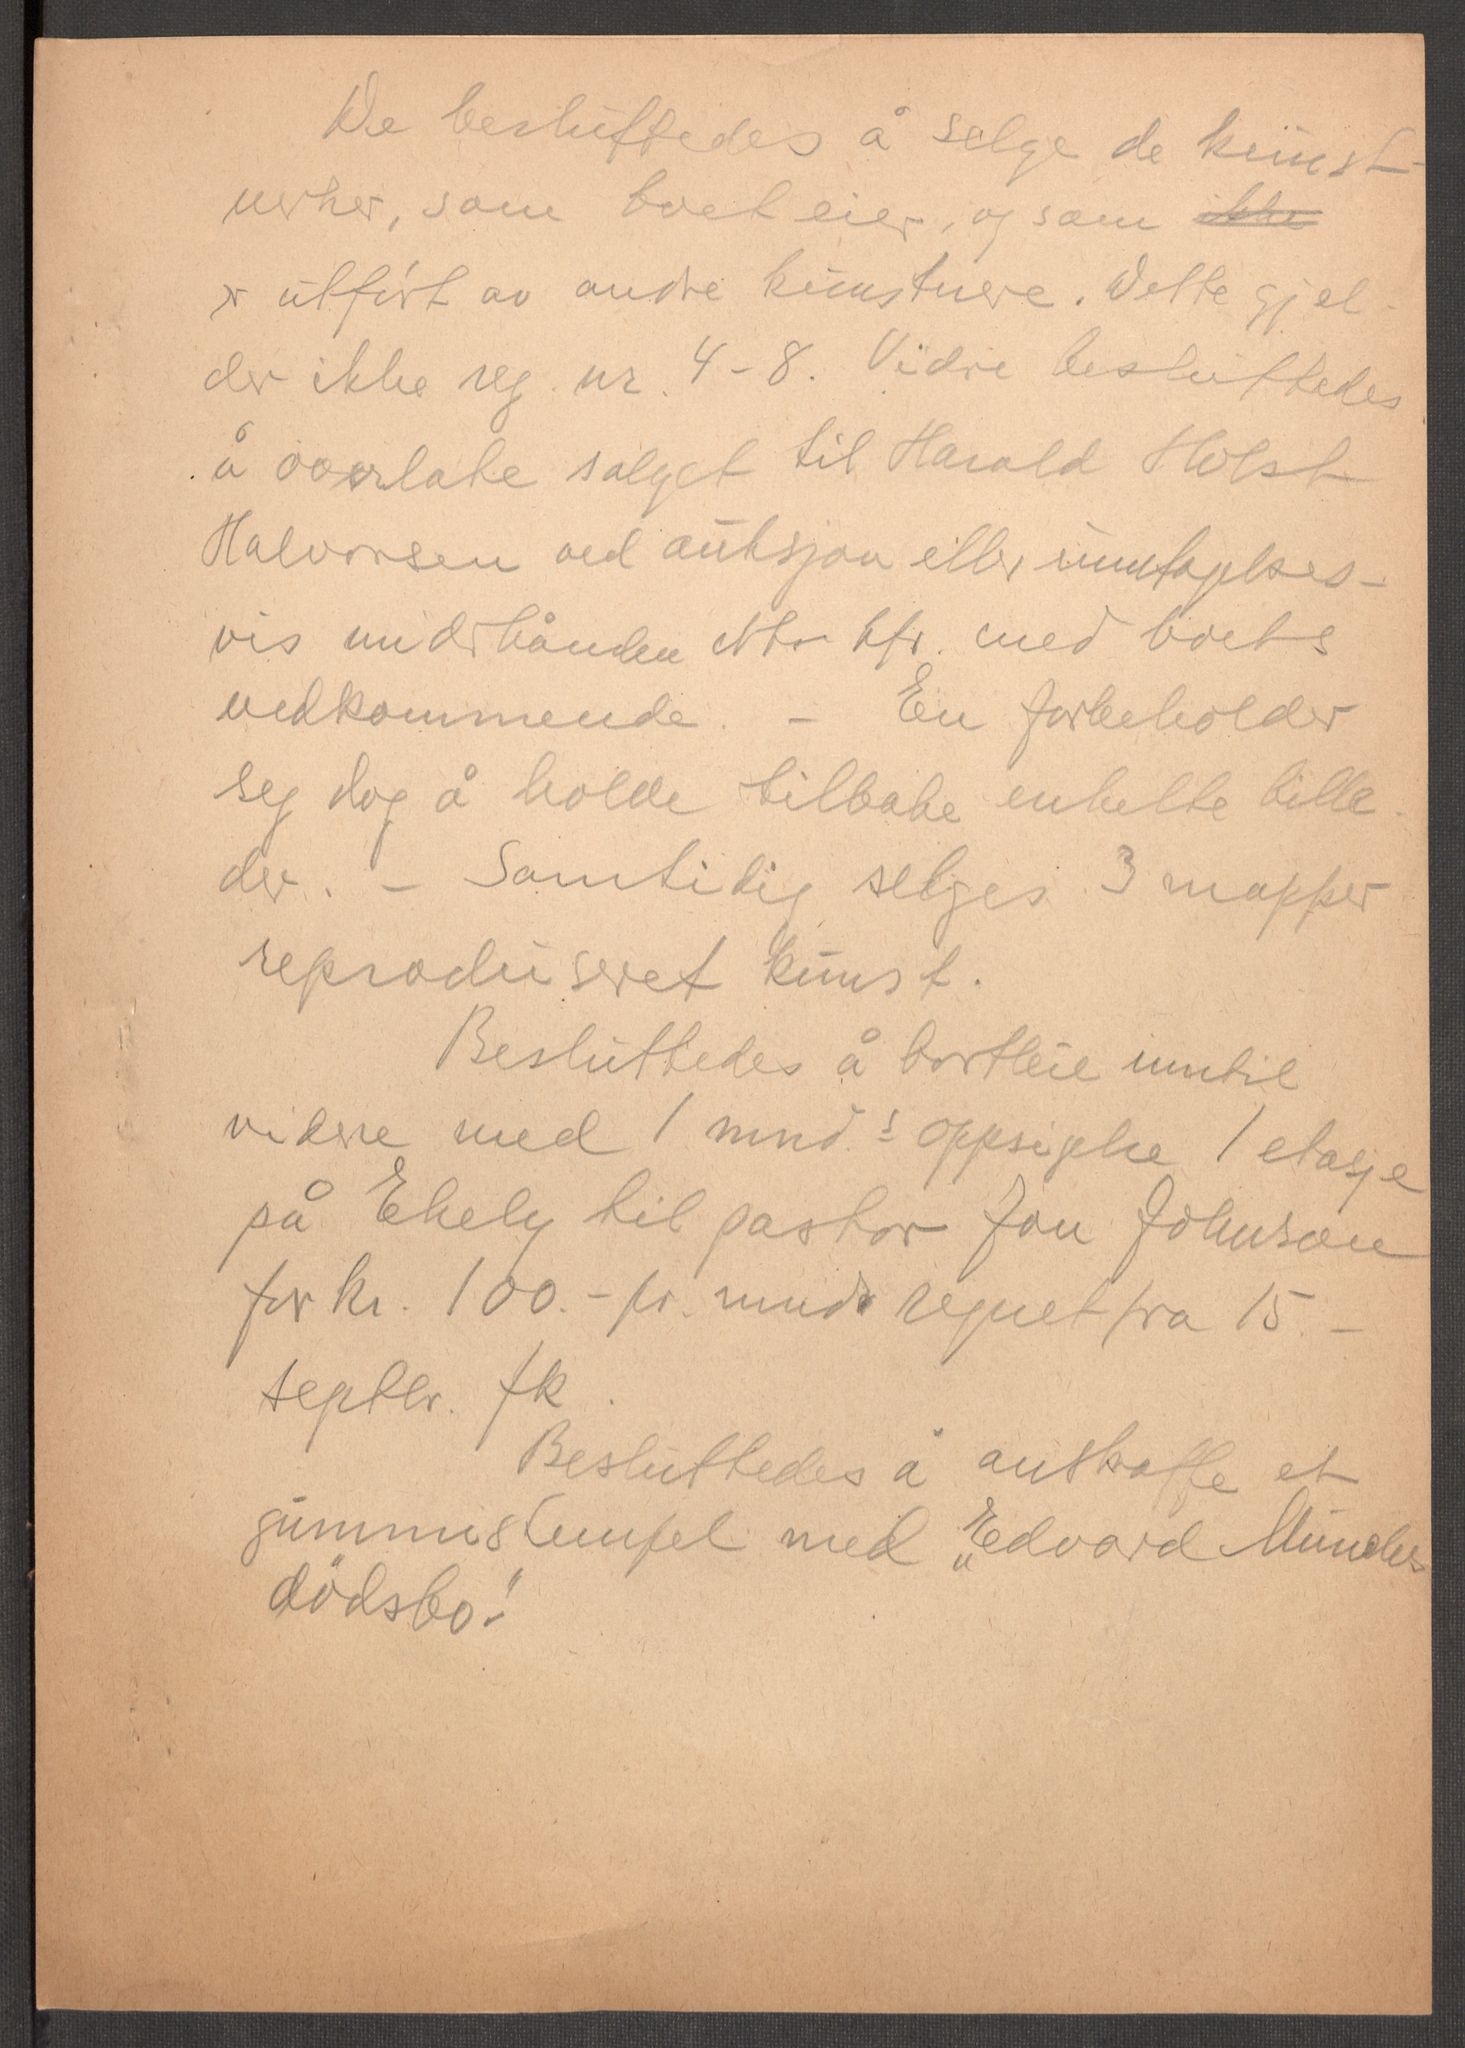 De besluttedes å selge de kunst-
verker, som boet eier, og som ikke
er utført av andre kunstnere. Dette gjel-
der ikke reg. nr. 4-8. Vidre besluttedes
å overlate salget til Harald Holst
Halvorsen ved auksjon eller unntagelses-
vis underhånden etter kfr. med boets
vedkommende. - En forbeholder
seg dog å holde tilbake enkelte bille-
der. - Samtidig selges 3 mapper
reproduseret kunst.
Besluttedes å bortleie inntil
videre med 1 mnd.s oppsigelse 1 etasje
på Ekely til pastor Jon Johnson
for kr. 100.- pr. mnd regnet fra 15.-
septbr. fk.
Besluttedes å anskaffe et
gummistempel med „Edvard Munchs
dödsbo".